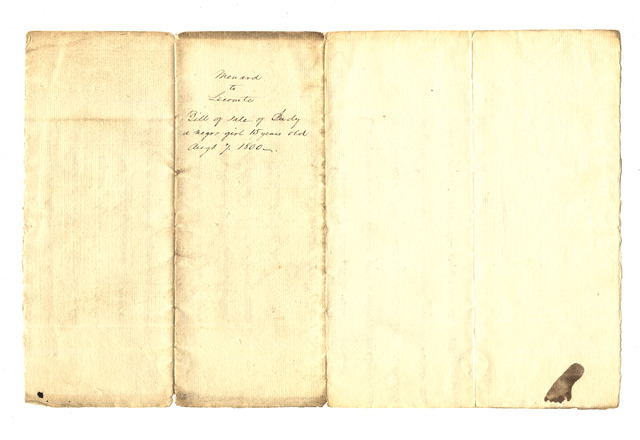 Menard
to
Lecomte
Bill of sale of Judy
a negro girl 15 years old
Augt 7. 1800